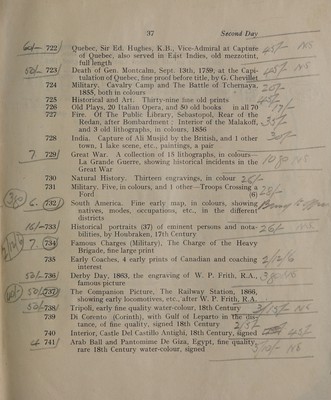 37 Second Day
722 Quebec, Sir Ed. Hughes, K.B., Vice-Admiral at Capture
of Quebec, also served in East Indies, old mezzotint,
full length
50/- 723 Death of Gen. Montcalm, Sept. 13th, 1759, at the Capi-
tulation of Quebec, fine proof before title, by G. Chevillet
724 Military. Cavalry Camp and The Battle of Tchernaya,
1855, both in colours
725 Historical and Art. Thirty-nine fine old prints
726 Old Plays, 20 Italian Opera, and 50 old books in all 70
727 Fire. Of The Public Library, Sebastopol, Rear of the
Redan, after Bombardment: Interior of the Malakoff,
and 3 old lithographs, in colours, 1856
728 India. Capture of Ali Musjid by the British, and 1 other
town, 1 lake scene, etc., paintings, a pair
7 729 Great War. A collection of 15 lithographs, in colours—
La Grande Guerre, showing historical incidents in the
Great War
730 Natural History. Thirteen engravings, in colour
731 Military, Five, in colours, and 1 other—Troops Crossing a
Ford (6)
6. 732 South America. Fine early map, in colours, showing
natives, modes, occupations, etc., in the different
districts
733 Historical portraits (37) of eminent persons and nota-
bilities, by Houbraken, 17th Century
7 734 Famous Charges (Military), The Charge of the Heavy
Brigade, fine large print
735 Early Coaches, 4 early prints of Canadian and coaching
interest 2/2/6
50/- 736 Derby Day, 1863, the engraving of W. P. Frith, R.A.,
famous picture
50/- 737 The Companion Picture, The Railway Station, 1866,
showing early locomotives, etc., after W. P. Frith, R.A.
50/- 738 Tripoli, early fine quality water-colour, 18th Century
739 Di Corento (Corinth), with Gulf of Leparto in the dis-
tance, of fine quality, signed 18th Century
740 Interior, Castle Del Castillo Antighi, 18th Century, signed
741 Arab Ball and Pantomime De Giza, Egypt, fine quality,
rare 18th Century water-colour, signed